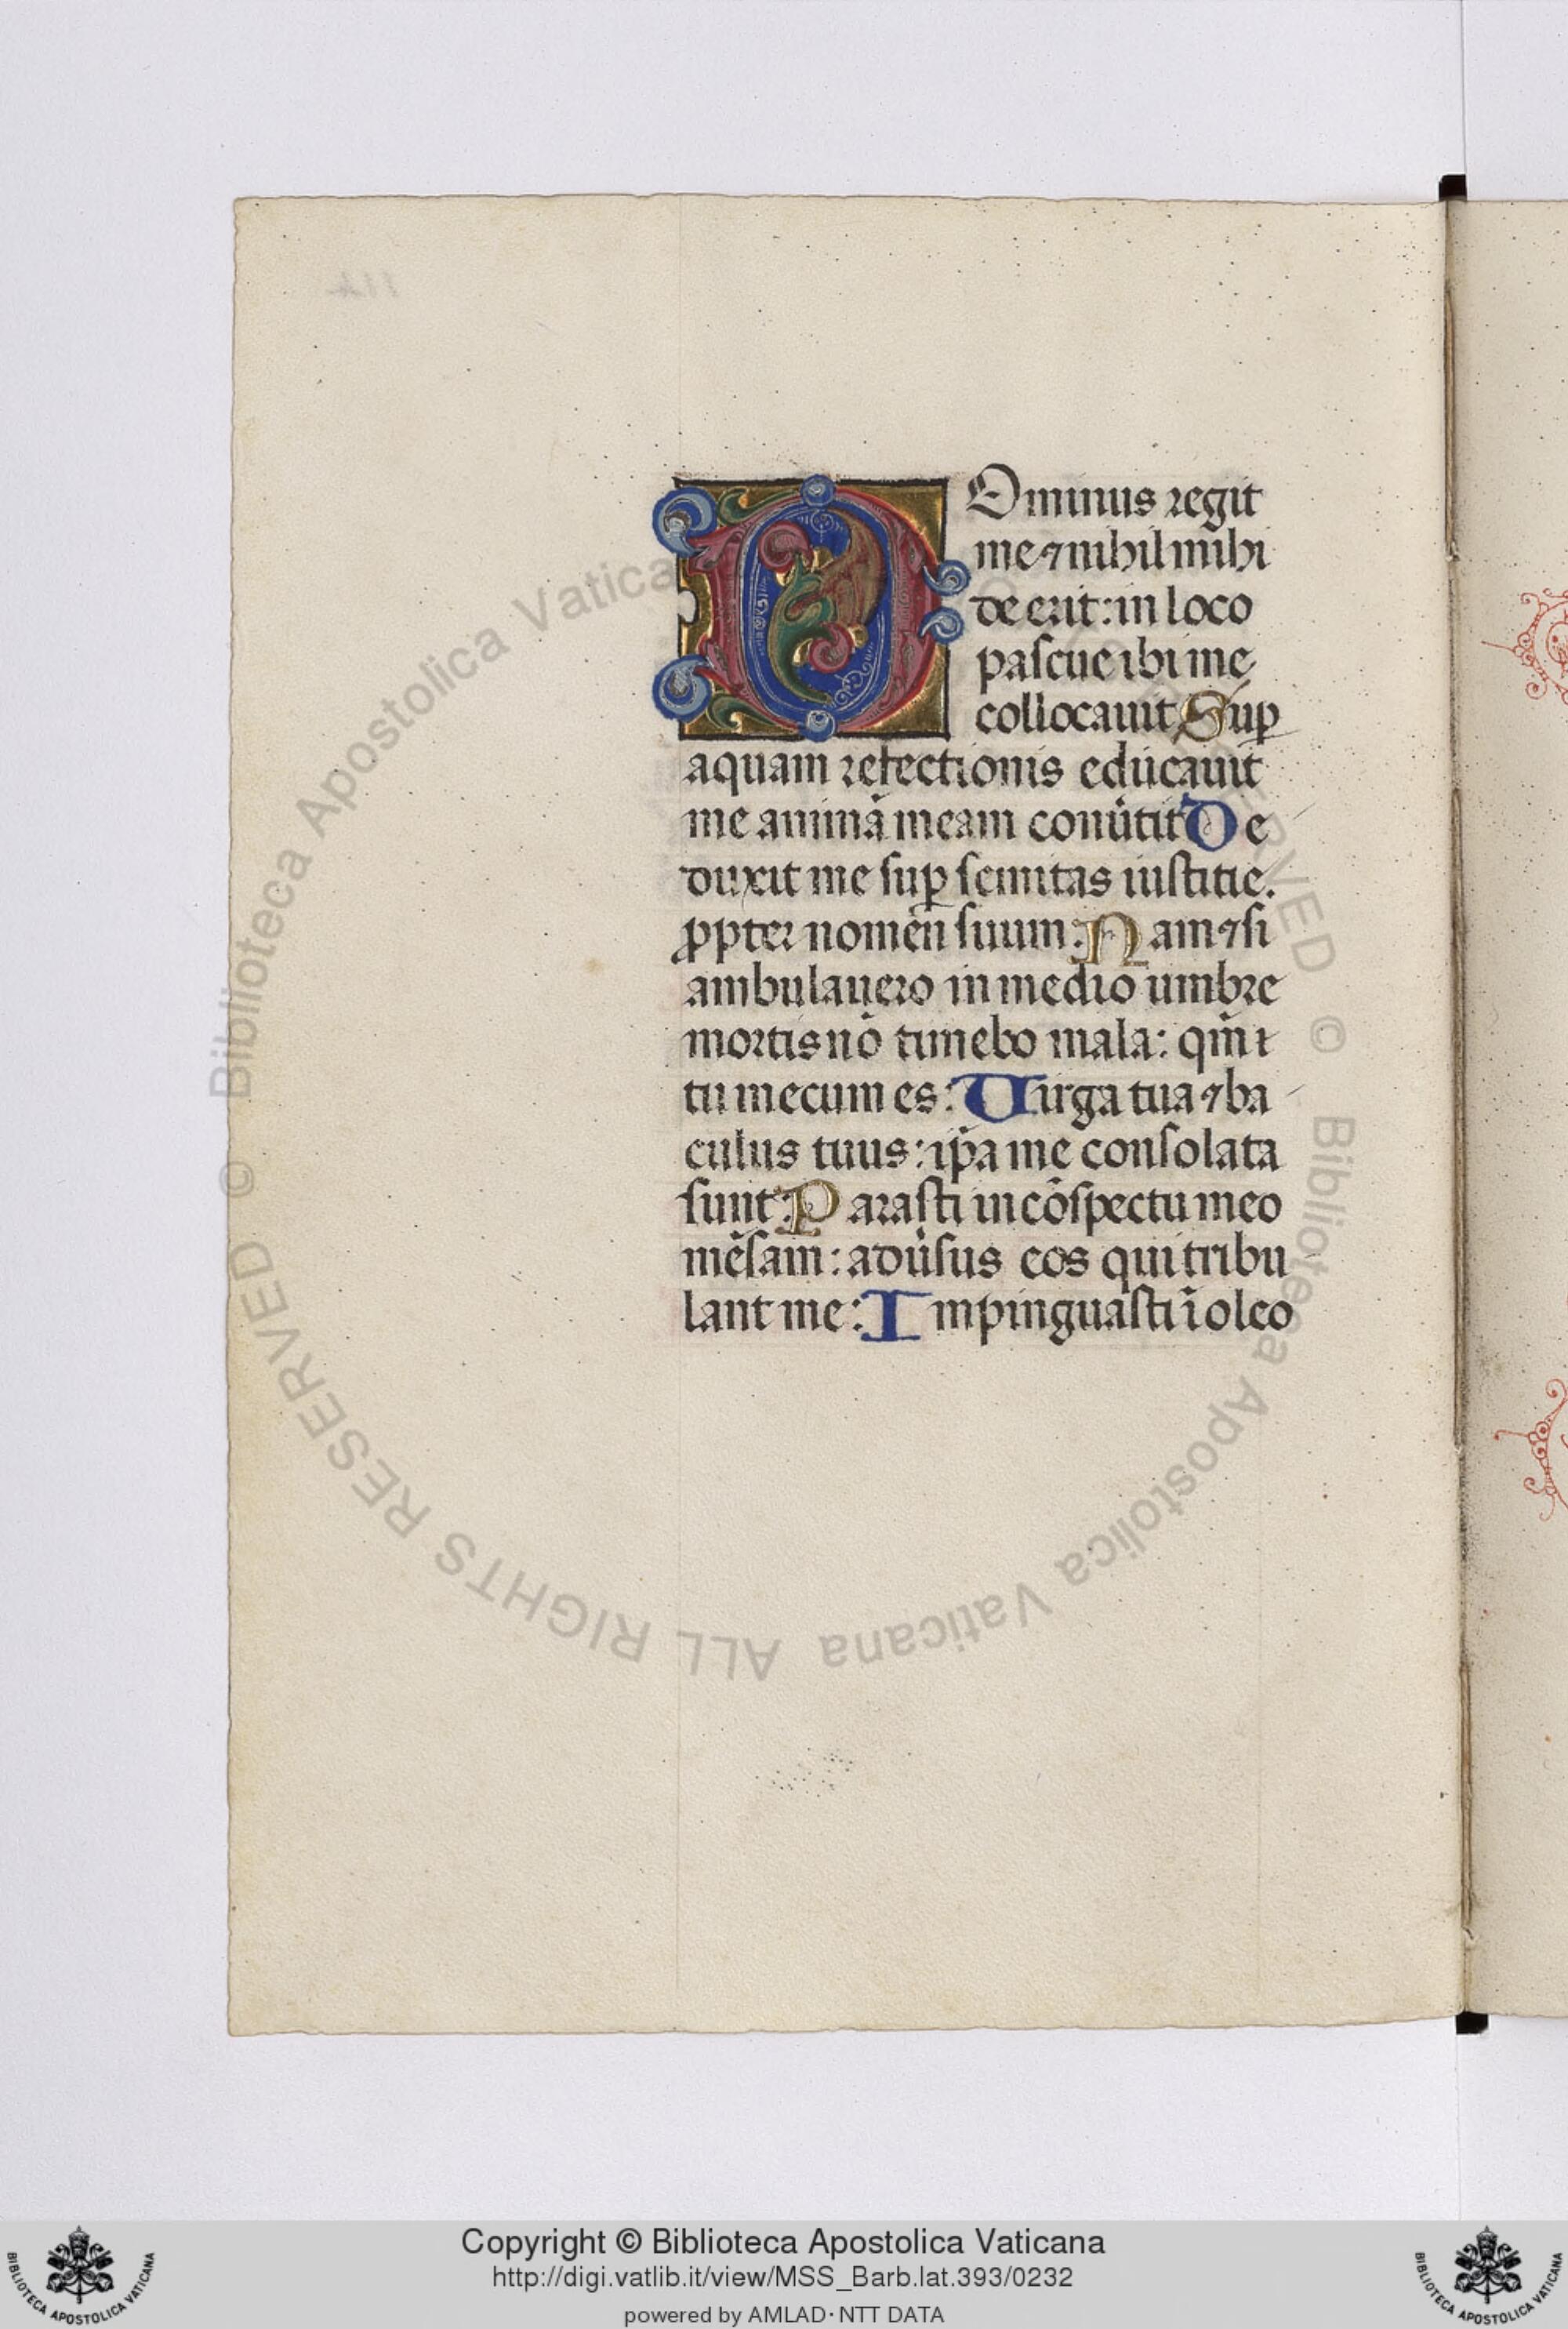 DOminus regit
me ⁊ nihil mihi
de erit: in loco
pascue ibi me
collocauit Suꝑ
aquam refectionis educauit
me animā meam conũtit De
duxit me suꝑ semitas iustitie.
ꝓpter nomen suum: Nam ⁊ si
ambulauero in medio umbre
mortis nō timebo mala: qm̄
tu mecum es: Uirga tua ⁊ ba
culus tuus: ip̄a me consolata
sunt: Parasti in cōspectu meo
mēsam: adũsus eos qui tribu
lant me: Impinguasti ī oleo
114
© Biblioteca Apostolica Vaticana ALL RIGHTS RESERVED
© Biblioteca Apostolica Vaticana ALL RIGHTS RESERVED
Copyright © Biblioteca Apostolica Vaticana
http://digi.vatlib.it/view/MSS_Barb.lat.393/0232
powered by AMLAD·NTT DATA
BIBLIOTECA APOSTOLICA VATICANA
BIBLIOTECA APOSTOLICA VATICANA